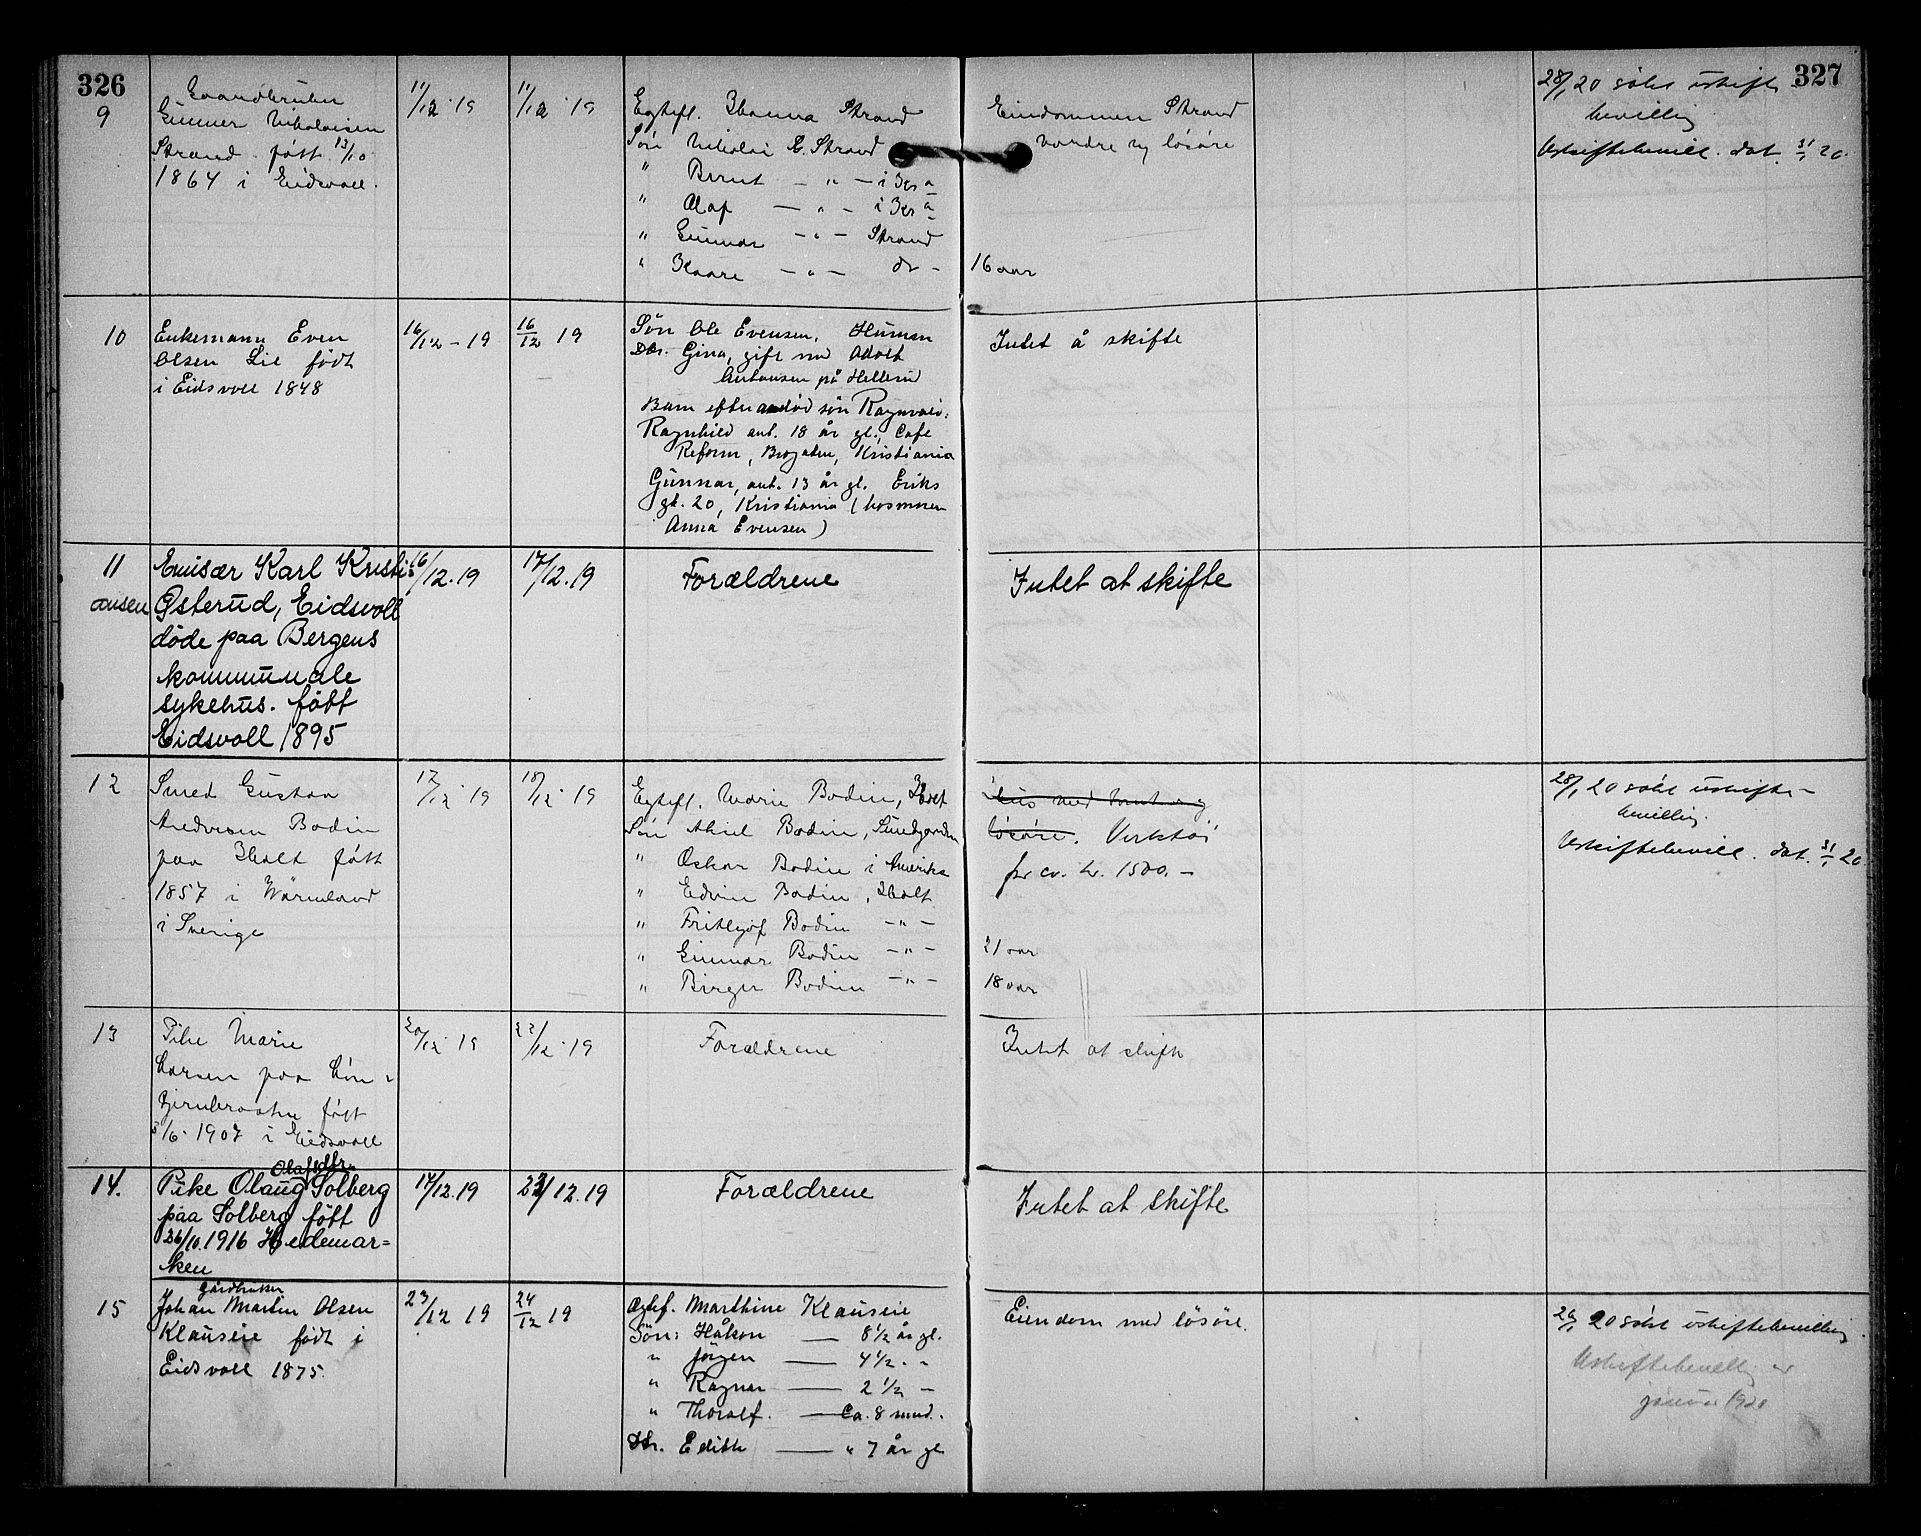 326
327
9
Gaardbruker
Gunner Nikolaisen
Strand. født 13/10
1864 i Eidsvoll.
11/12 19
11/12 19
Egtefl. Strand
Søn Nikolai G. Strand
" Bernt — " —
" Olaf — " —
" Gunnar — " — Strand
" Kaare — " — do — 16 aar
Eiendommen Strand
vordre og løsøre
28/1 20 søkt uskifte
bevilling
Uskiftebevill. dat. 31/1 20.
10
Enkemann Even
Olsen Lie født
i Eidsvoll 1848
16/12 - 19
16/12 19
Søn Ole Evensen, Hūmen
Dtr. Gina, gift med Adolf
Antonsen på Hellerud
Barn efter avdød søn Ragnvald:
Ragnhild ant. 18 år gl., Cafe
Reform, Brogaten, Kristiania
Gūnnar, ant. 13 år gl. Eriks
gt. 20, Kristiania (hos moren
Anna Evensen)
Intet å skifte
11
Emisær Karl Kristi-
ansen Østerūd, Eidsvoll
døde paa Bergens
kommūnale
sykehūs. født
Eidsvoll 1895
16/12.19
17/12.19
Forældrene
Intet at skifte
12
Smed Gūstav
Andresen Bodin
paa Holt født
1857 i Wärmland
i Sverige
17/12 19
18/12 19
Egtefl. Marie Bodin, Holt
Søn Bodin,
" Oskar Bodin i Amerika
" Edvin Bodin, Holt
" Frithjof Bodin — " —
" Gunnar Bodin — " — 21 aar
" Birger Bodin — " — 18 aar
Hus med tomt og
løsøre. Verktøi
for ca. kr. 1500.—
28/1 20 søkt uskifte-
bevilling.
Uskiftebevill. dat. 31/1 20
13
Pike Marie
Larsen paa
født
3/6. 1907 i Eidsvoll
20/12 19
22/12 19
Forældrene
Intet at skifte
14.
Olafsdtr.
Pike Olaūg Solberg
paa Solberg født
26/10.1916 Hedemar=
ken
17/12.19
23/12.19
Forældrene
Intet at skifte
15
Gårdbruker
Johan Martin Olsen
Klaūseie født i
Eidsvoll 1875.
23/12 19
24/12 19
Egtef. Marthine Klaūseie
Søn: Håkon — 8 1/2 år gl.
" Jörgen — 4 1/2 . "
" Ragnar — 2 1/2 —
" Thoralf. — Ca. 8 mnd.
Dtr. Edith — " 7 år gl
Eiendom med løsøre.
26/1 20 søkt uskiftebevilling.
Uskiftebevillig
1920